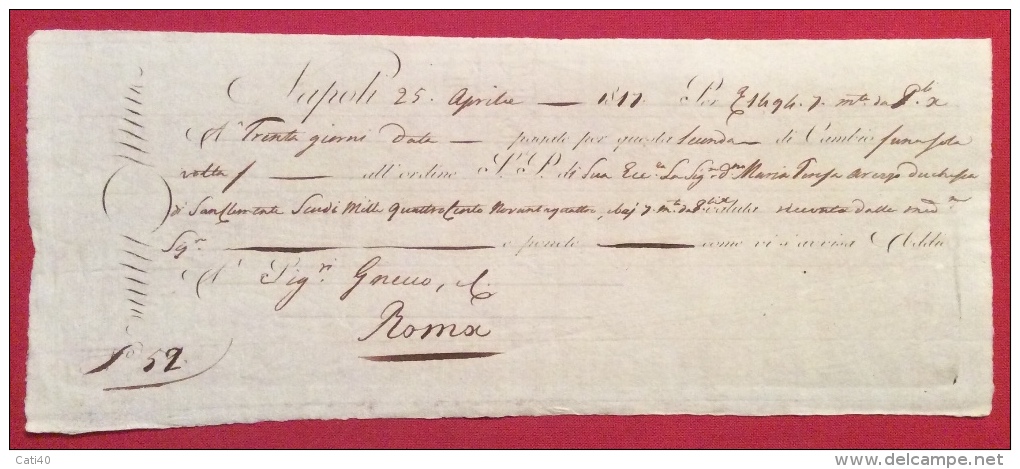 Napoli 25. Aprile 1817 Per 1494. 7. mta da P.li x
A Trenta giorni data pagate per questa Seconda di Cambio una sola
volta all'ordine S. P. di Sua Ecc.za La Sig.ra D.na Maria Teresa Arezzo Duchessa
di San Clemente Scudi Mille Quattro Cento Novantaquattro, e baj 7 m.ta da P.li x valuta ricevuta dalla med.ma
Sig.ra e ponete come vi s'avvisa Addio
A Sig.ri Gnecco, C.
Roma
52.
Cati40